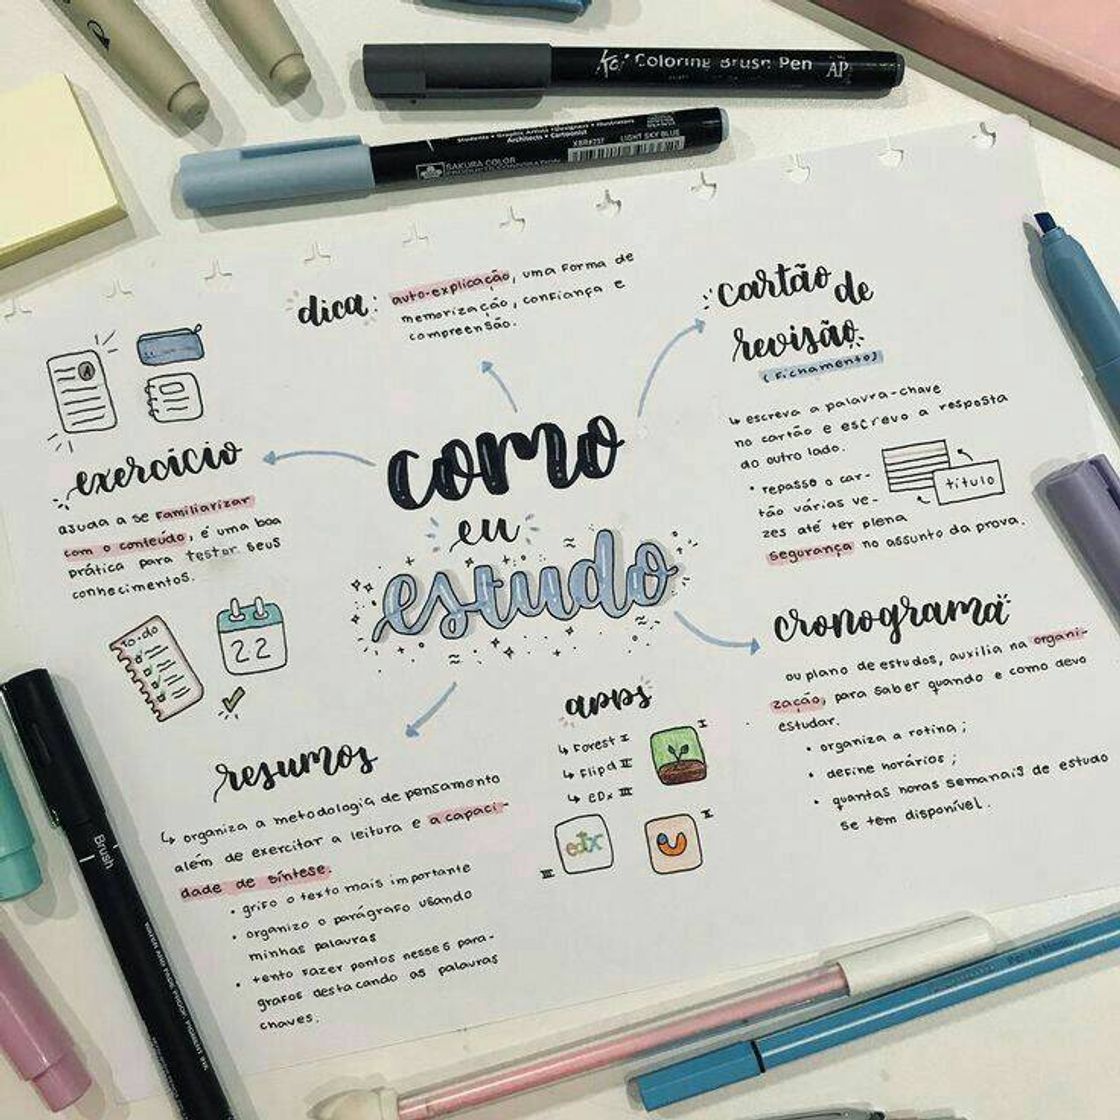 Koi Coloring Brush Pen
AP
Students • Graphic Artists • Designers • Illustrators
Architects • Cartoonist
XBR#237 LIGHT SKY BLUE
SAKURA COLOR
PRODUCTS CORPORATION
dica: auto-explicação, uma forma de
memorização, confiança e
compreensão.
cartão de
revisão
(Fichamento)
↳ escreva a palavra-chave
no cartão e escrevo a resposta
do outro lado.
• repasso o car-
tão várias ve-
zes até ter plena
segurança no assunto da prova.
título
A
exercício
ajuda a se familiarizar
com o conteúdo, é uma boa
prática para testar seus
conhecimentos.
como
eu
estudo
to-do
22
cronograma
ou plano de estudos, auxilia na organi-
zação, para saber quando e como devo
estudar.
• organiza a rotina;
• define horários;
• quantas horas semanais de estudo
se tem disponível.
apps
↳ Forest I
↳ Flipd II
↳ eDx III
I
edX
III
I
resumos
↳ organiza a metodologia de pensamento
além de exercitar a leitura e a capaci-
dade de síntese.
• grifo o texto mais importante
• organizo o parágrafo usando
minhas palavras
• tento fazer pontos nesses pará-
grafos destacando as palavras
chaves.
Brush